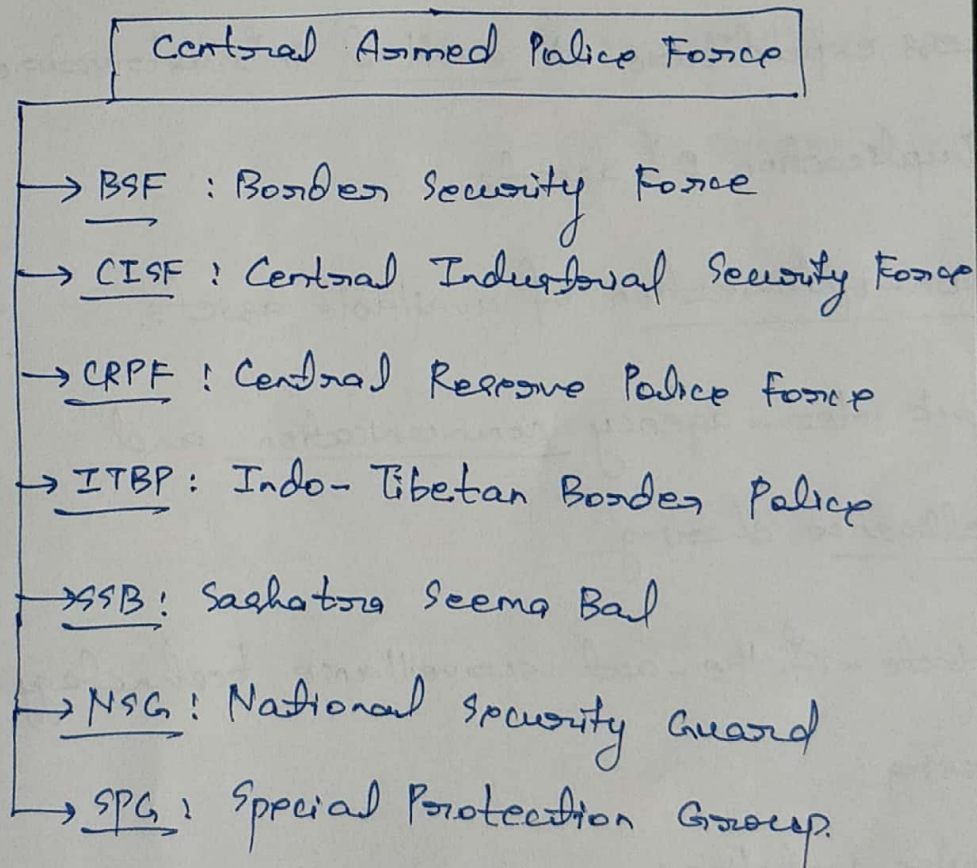 Central Armed Police Force
BSF : Border Security Force
CISF : Central Industrial Security Force
CRPF : Central Reserve Police force
ITBP : Indo-Tibetan Border Police
SSB : Sashatra Seema Bal
NSG : National Security Guard
SPG : Special Protection Group.